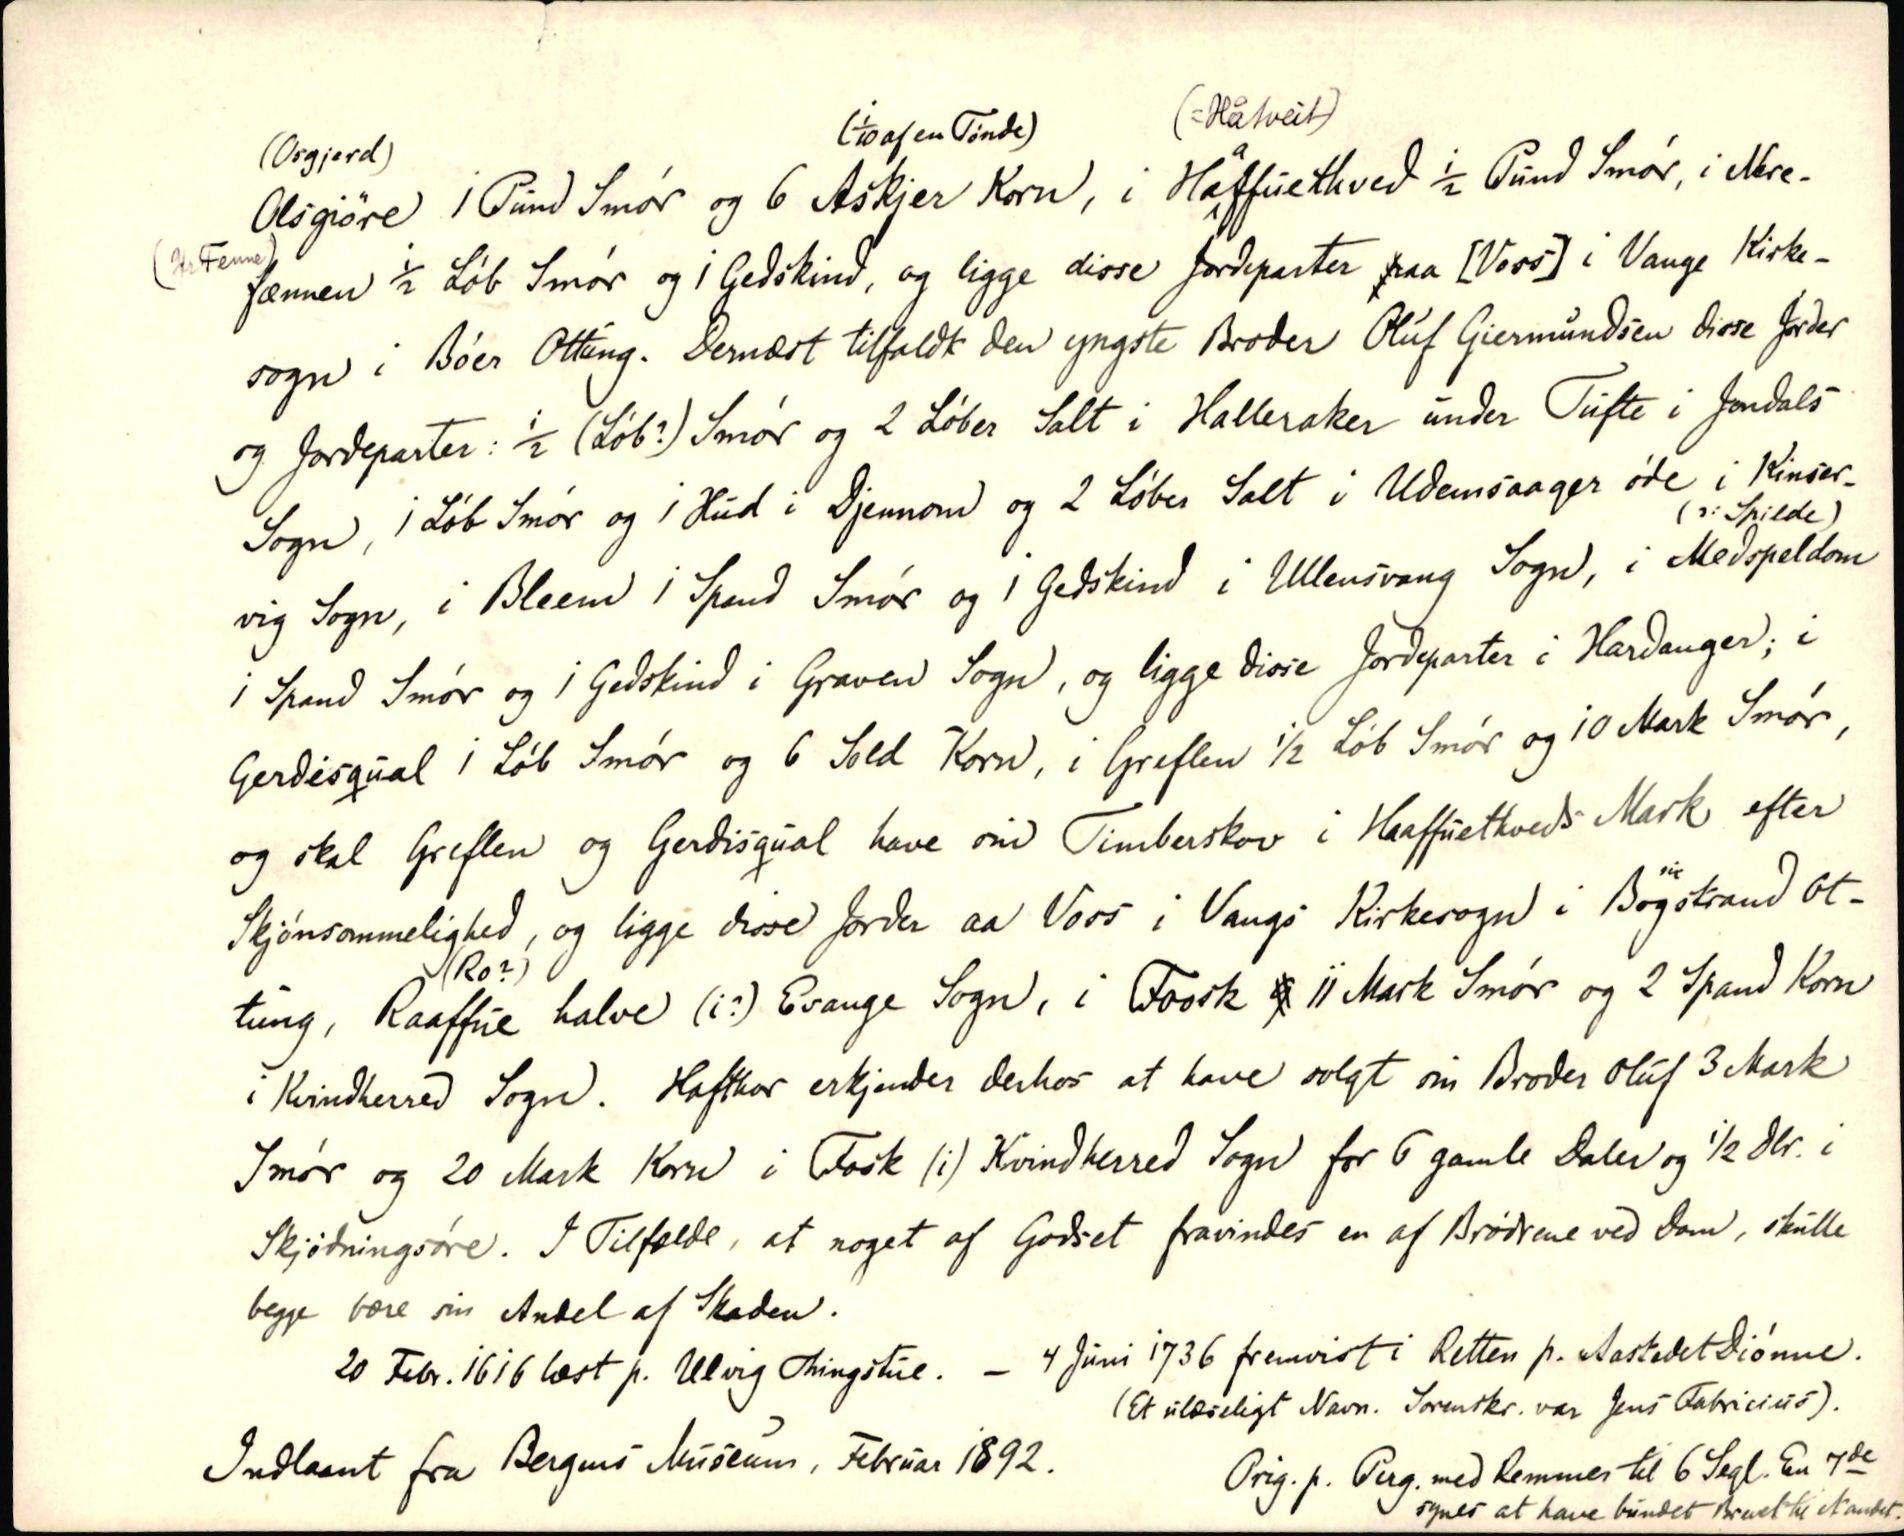 (Osgjerd) (1/10 af en Tønde) (=Håtveit)
Olsgiöre 1 Pund Smör og 6 Askjer Korn, i Haaffuethved 1/2 Pund Smör, i Nere-
(Nr Fenne)
fænnen 1/2 Löb Smör og 1 Gedskind, og ligge disse Jordeparter paa [Voss] i Vange Kirke-
sogn i Böer Ottung. Dernæst tilfaldt den yngste Broder Oluf Giermundsen disse Jorder
og Jordeparter: 1/2 (Löb?) Smör og 2 Löber Salt i Halleraker under Tufte i Jondals
Sogn, 1 Löb Smör og 1 Hud i Djennom og 2 Löber Salt i Udemsaager öde i Kinser-
(ɔ: Spilde)
vig Sogn, i Bleem 1 Spand Smör og 1 Gedskind i Ullensvang Sogn, i Medspeldom
1 Spand Smör og 1 Gedskind i Graven Sogn, og ligge disse Jordeparter i Hardanger; i
Gerdisqual 1 Löb Smör og 6 Sold Korn, i Greflen 1/2 Löb Smör og 10 Mark Smör,
og skal Greflen og Gerdisqual have sin Timberskov i Haaffuethveds Mark efter
sic
Skjönsommelighed, og ligge disse Jorder aa Voss i Vangs Kirkesogn i Bögstrand Ot-
(Ro?)
tung, Raaffue halve (i?) Evange Sogn, i Foosk 11 Mark Smör og 2 Spand Korn
i Kvindherred Sogn. Hafthor erkjender derhos at have solgt sin Broder Oluf 3 Mark
Smör og 20 Mark Korn i Fosk (i) Kvindherred Sogn for 6 gamle Daler og 1/2 Dlr. i
Skjödningsöre. I Tilfælde, at noget af Godset fravindes en af Brödrene ved Dom, skulle
begge bære sin Andel af Skaden.
20 Febr. 1616 læst p. Ulvig Thingstue. – 4 Juni 1736 fremvist i Retten p. Aastedet Diönne.
(Et ulæseligt Navn. Sorenskr. var Jens Fabricius).
Indlaant fra Bergens Museum, Februar 1892.
Orig. p. Perg. med Remmer til 6 Segl. En 7de
synes at have bundet Brevet til et andet